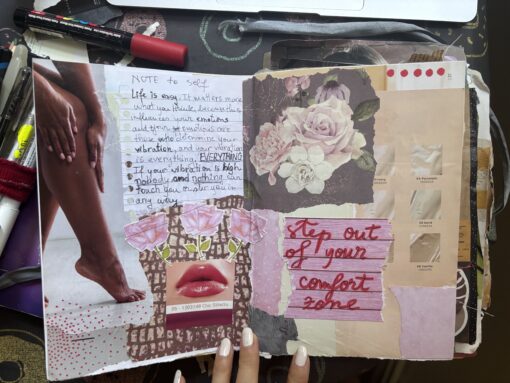 NOTE to self
Life is easy. It matters more
what you think, because this
influences your emotions
and your emotions are
those who determine your
vibration, and your vibration
is everything. EVERYTHING
If your vibration is high
nobody and nothing can
touch you or hurt you in
any way
Step out
of your
comfort
zone